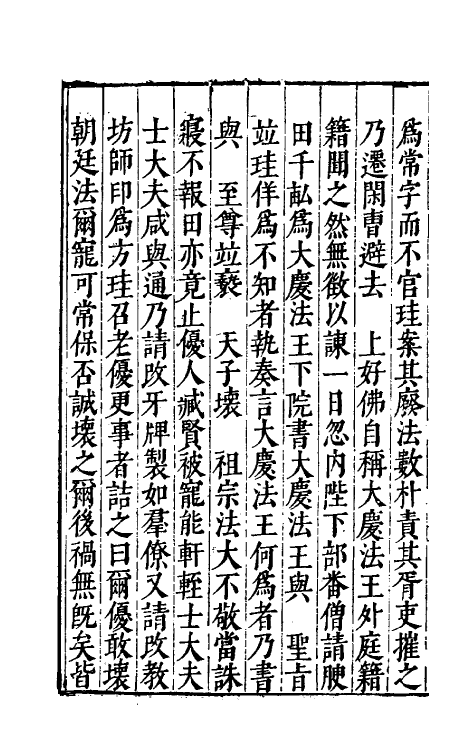 爲常字而不官珪案其廢法數朴責其胥吏摧之
乃遷閑曹避去　上好佛自稱大慶法王外庭籍
籍聞之然無徵以諫一日忽内陛下部畨僧請腴
田千畝爲大慶法王下院書大慶法王與　聖旨
竝珪佯爲不知者執奏言大慶法王何爲者乃書
與　至尊竝褻　天子壞　祖宗法大不敬當誅
寢不報田亦竟止優人臧賢被寵能軒輊士大夫
士大夫咸與通乃請改牙牌製如羣僚又請改教
坊師印爲方珪召老優更事者詰之曰爾優敢壞
朝廷法爾寵可常保否誠壞之爾後禍無旣矣皆